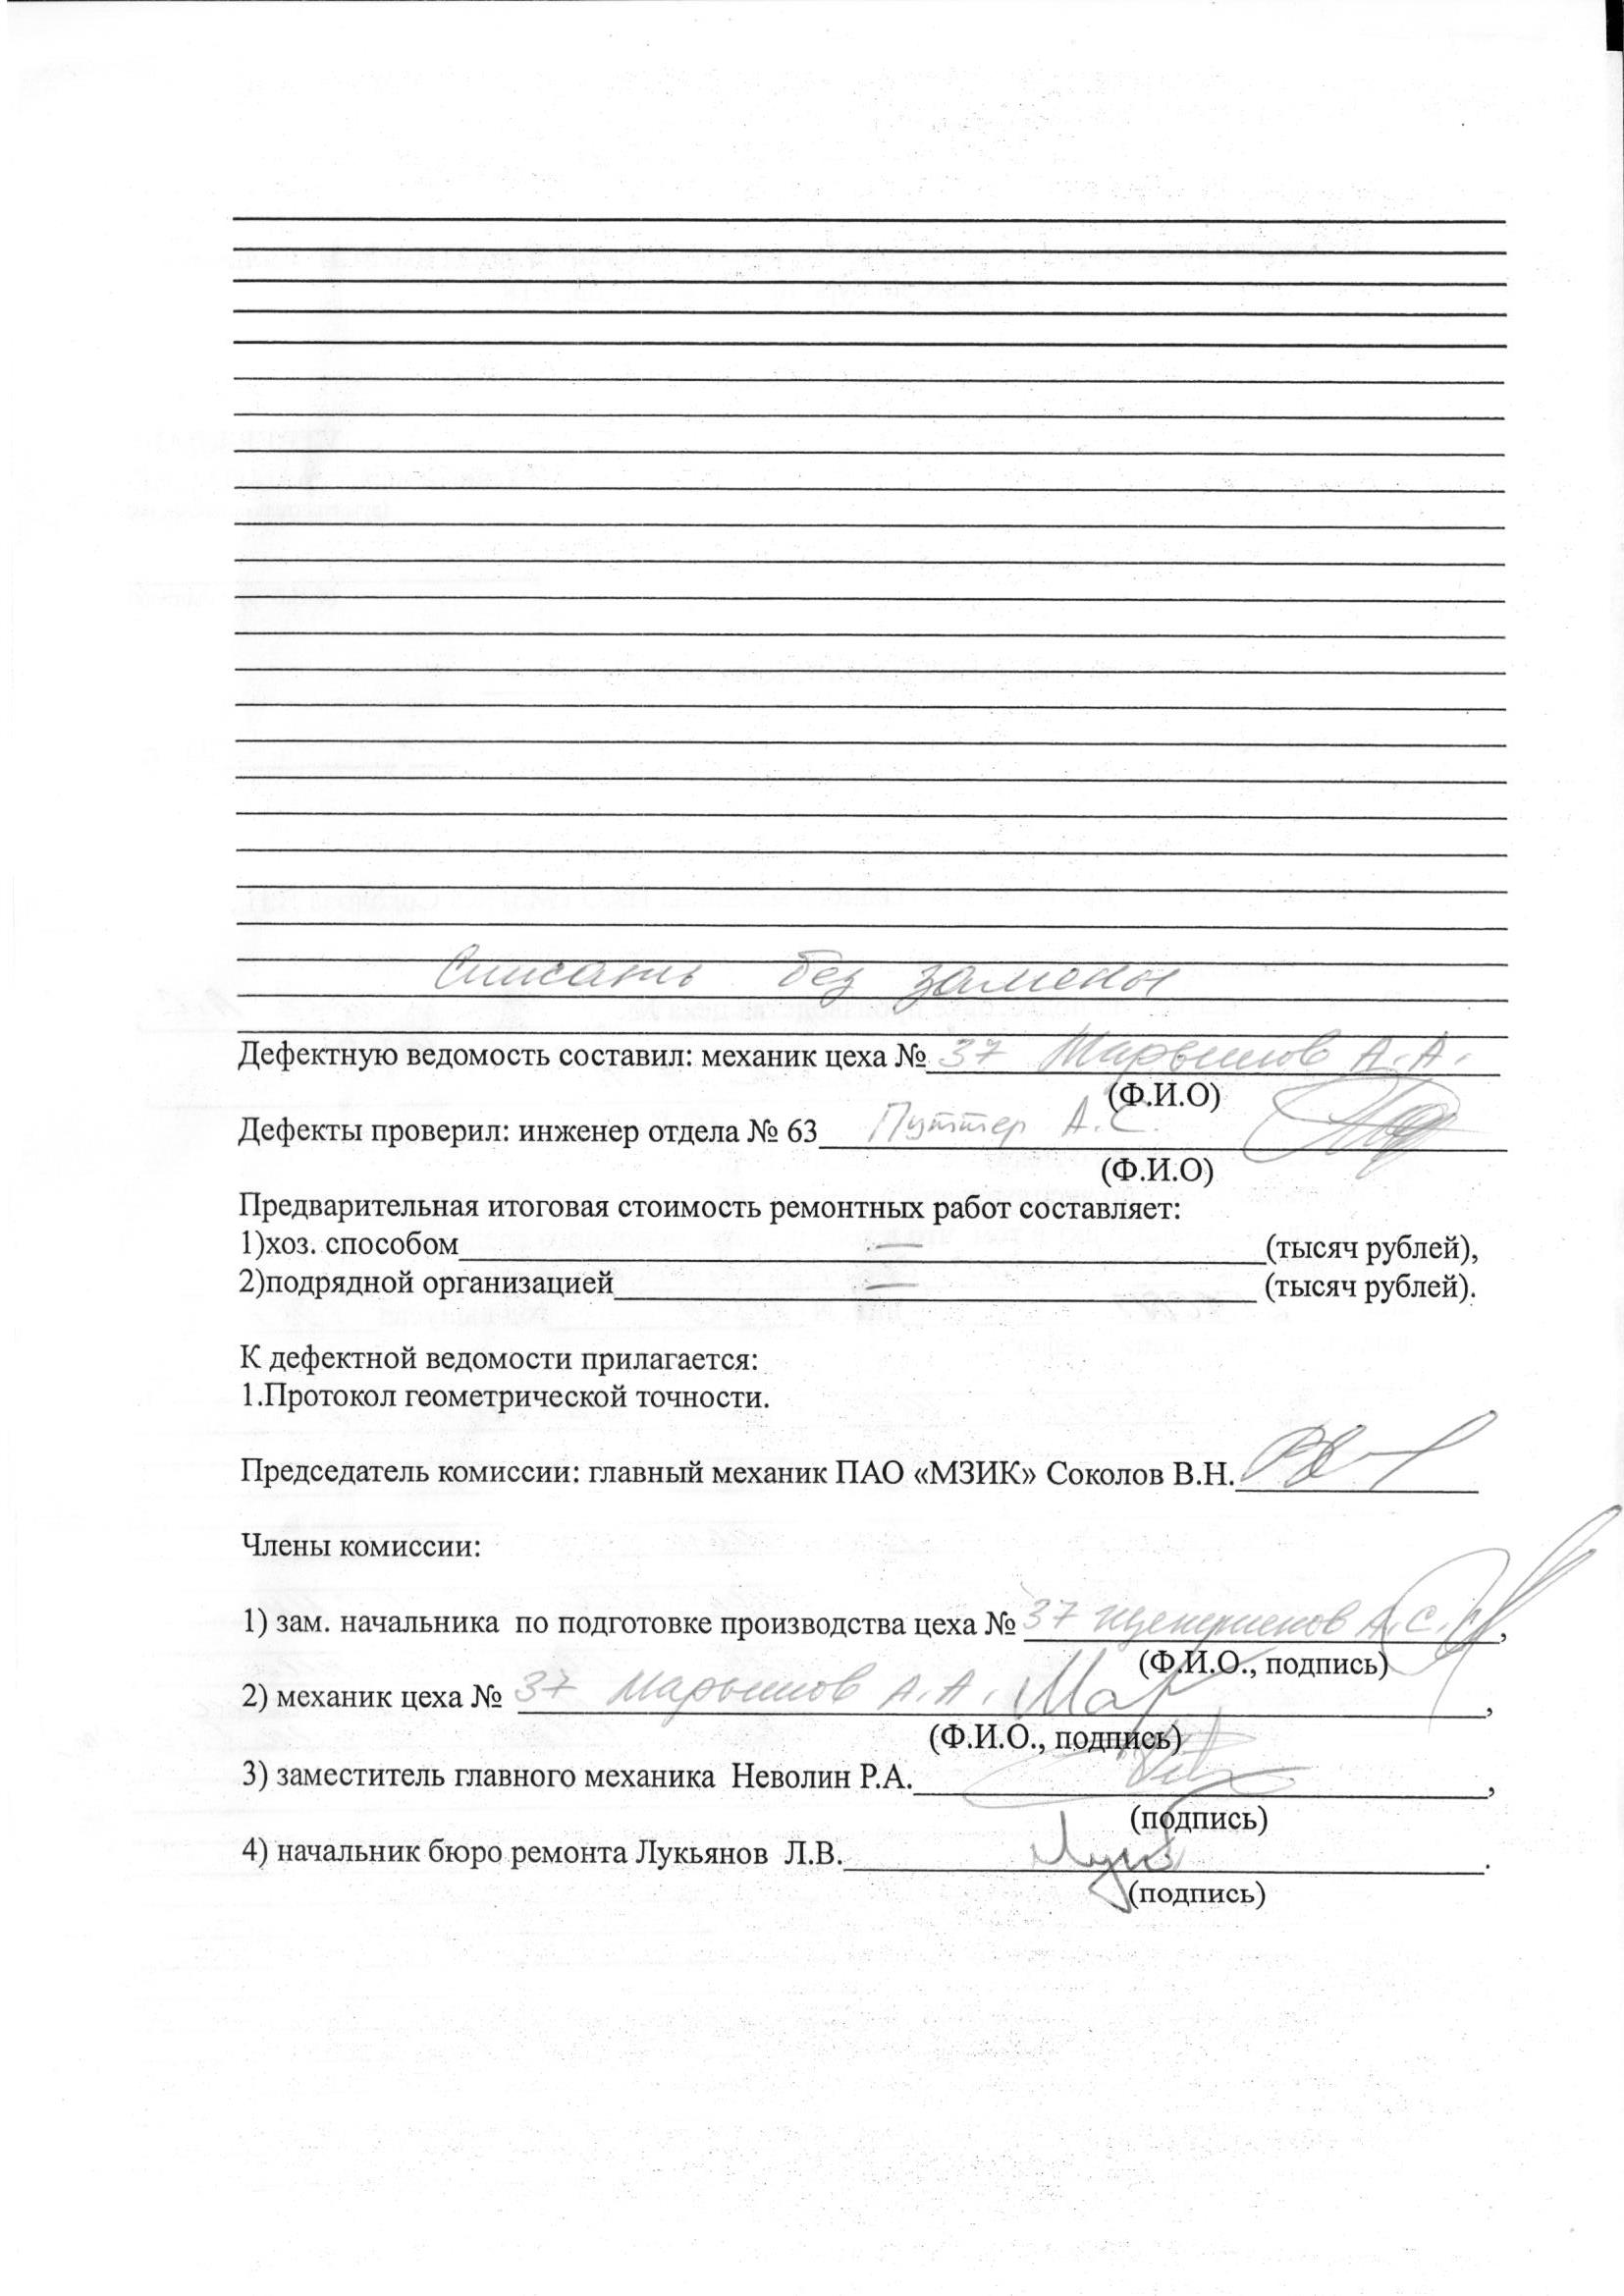 Списать без замены
Дефектную ведомость составил: механик цеха № 37 Марьинов А.А.
(Ф.И.О)
Дефекты проверил: инженер отдела № 63 Путтер А.С.
(Ф.И.О)
Предварительная итоговая стоимость ремонтных работ составляет:
1)хоз. способом — (тысяч рублей),
2)подрядной организацией — (тысяч рублей).
К дефектной ведомости прилагается:
1.Протокол геометрической точности.
Председатель комиссии: главный механик ПАО «МЗИК» Соколов В.Н.
Члены комиссии:
1) зам. начальника по подготовке производства цеха № 37 А.С. ,
(Ф.И.О., подпись)
2) механик цеха № 37 Марьинов А.А. ,
(Ф.И.О., подпись)
3) заместитель главного механика Неволин Р.А. ,
(подпись)
4) начальник бюро ремонта Лукьянов Л.В. .
(подпись)